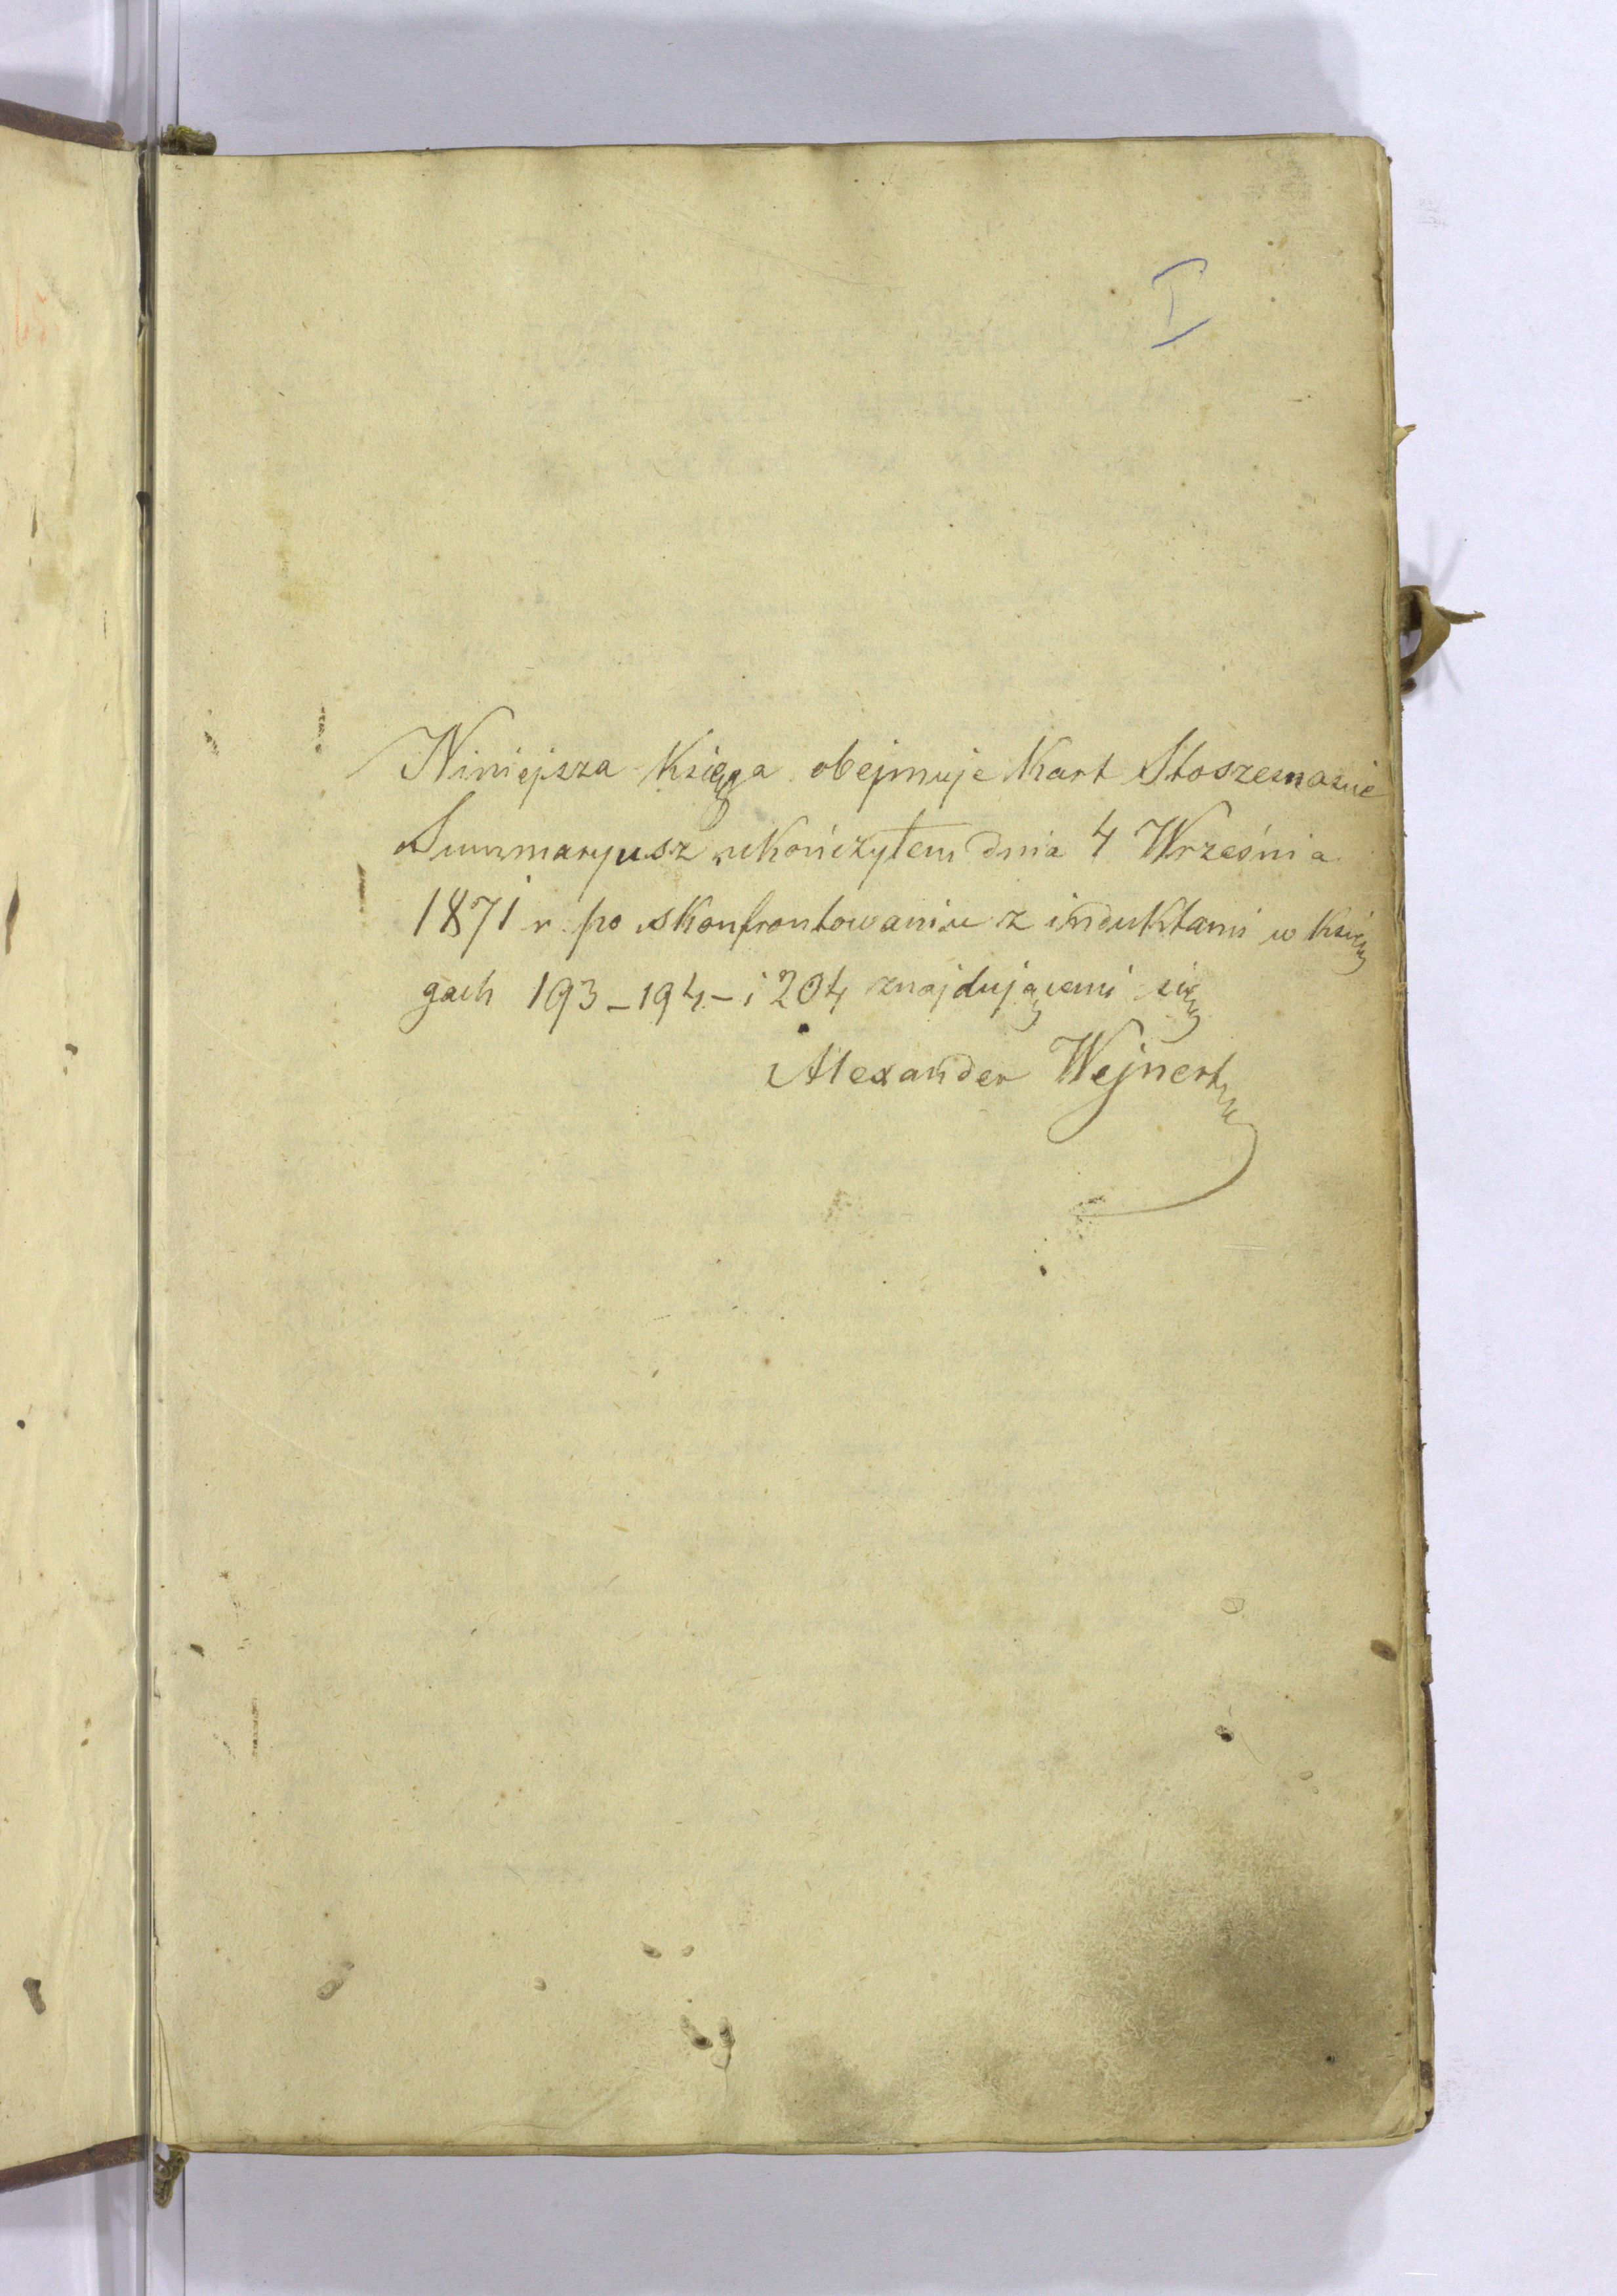 I
Niniejsza Księga obejmuje Kart Stoszesnaście
Summaryusz ukończyłem dnia 4 Września
1871 r po skonfrontowaniu z induktami w Księ
gach 193 – 194 – i 204 znajdującemi się
Alexander Wejnert